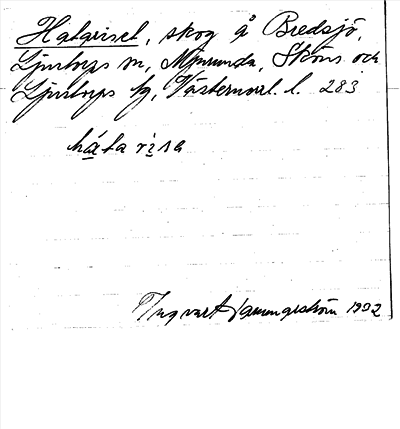 Hatarisel, skog å Bredsjö,
Ljustorps sn, Njurunda, Sköns och
Ljustorps tg, Västernorrl. l. 283
háta risa
Ingvart Jamungström 1932